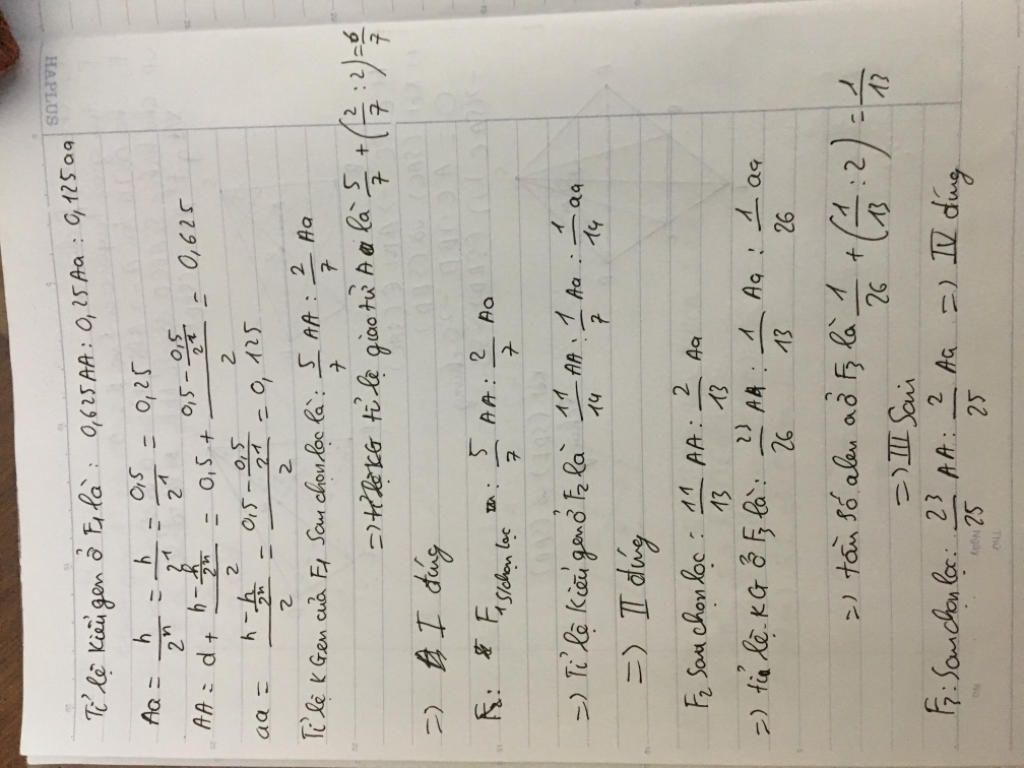 HAPLUS
Tỉ lệ Kiểu gen ở F1 là: 0,625AA : 0,25Aa : 0,125aa
Aa = h/2^n = h/2^1 = 0,5/2^1 = 0,25
AA = d + (h - h/2^n)/2 = 0,5 + (0,5 - 0,5/2^1)/2 = 0,625
aa = (h - h/2^n)/2 = (0,5 - 0,5/2^1)/2 = 0,125
Tỉ lệ KGen của F1 sau chọn lọc là: 5/7 AA : 2/7 Aa
=> tỉ lệ giao tử A là 5/7 + (2/7 : 2) = 6/7
=> I đúng
F2: F1 s/chọn lọc: 5/7 AA : 2/7 Aa
=> Tỉ lệ Kiểu gen ở F2 là 11/14 AA : 1/7 Aa : 1/14 aa
=> II đúng
F2 sau chọn lọc: 11/13 AA : 2/13 Aa
=> tỉ lệ KG ở F3 là: 23/26 AA : 1/13 Aa : 1/26 aa
=> tần số alen a ở F3 là 1/26 + (1/13 : 2) = 1/13
=> III Sai
F3: Sau chọn lọc: 23/25 AA : 2/25 Aa => IV đúng